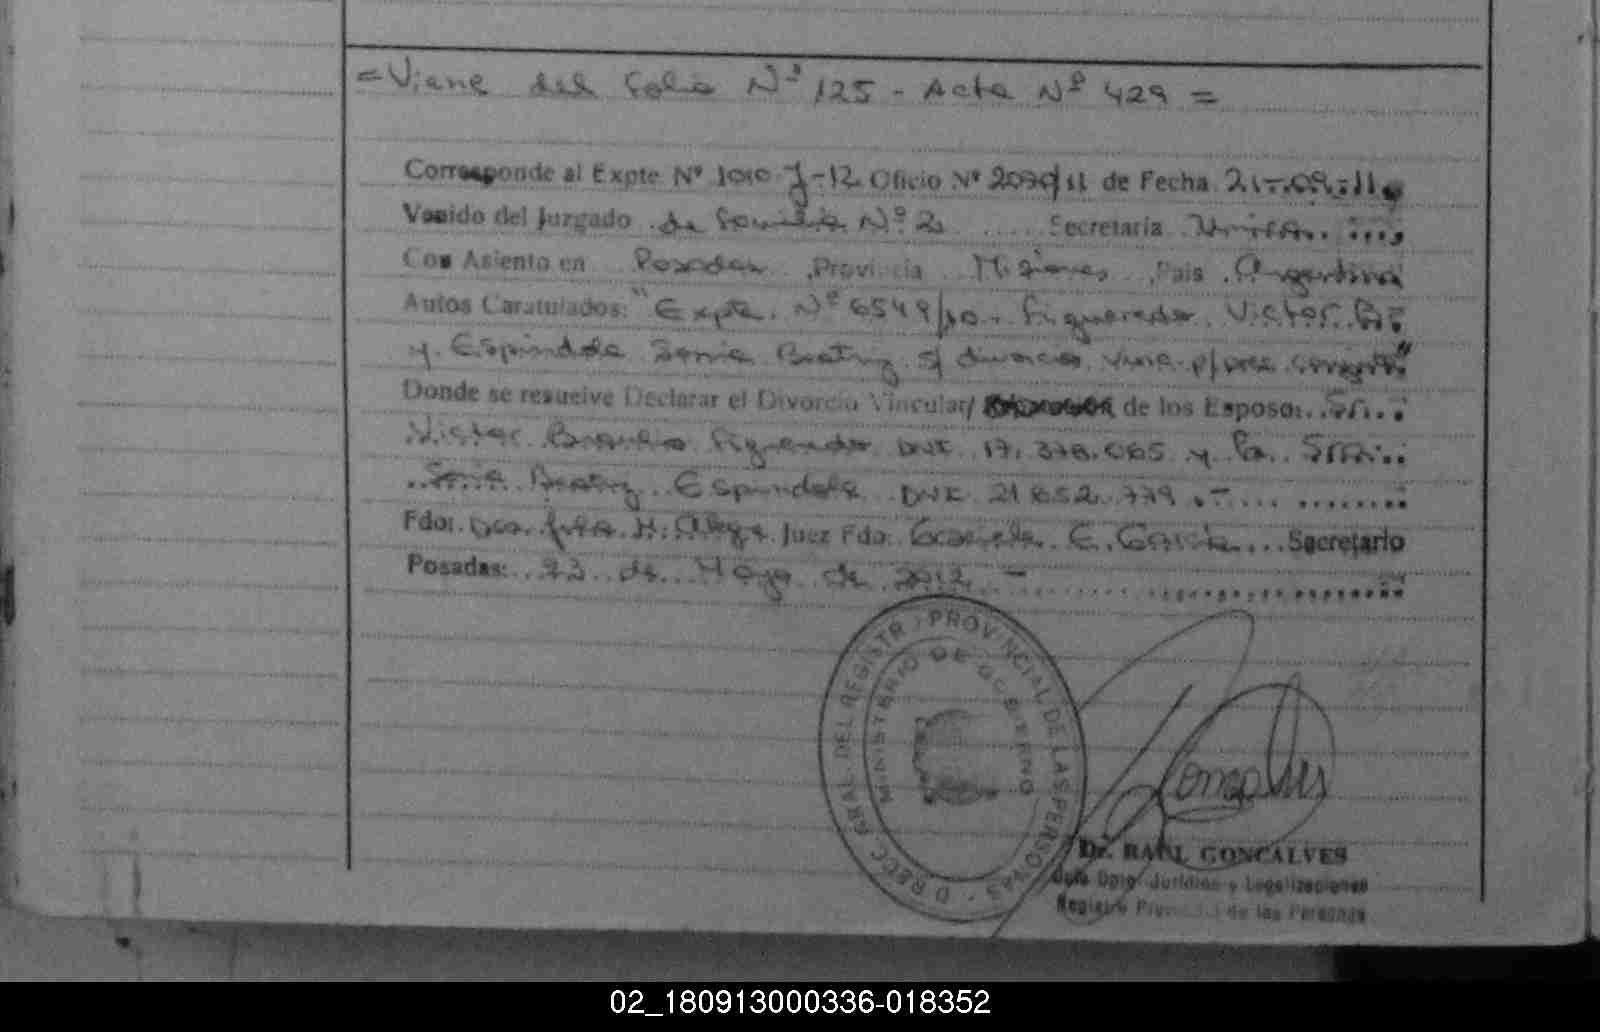 = Viene del folio Nº 125 - Acta Nº 429 =
Corresponde al Expte Nº 1010 J-12 Oficio Nº 2070/11 de Fecha 21-09-11
Venido del Juzgado de Familia Nº 2 Secretaria Unica
Con Asiento en Posadas, Provincia Misiones, Pais Argentina
Autos Caratulados: "Expte. Nº 6549/10 - Figueredo Victor B.
y Espindola Sonia Beatriz s/ divorcio vinc. p/pres. conjunta"
Donde se resuelve Declarar el Divorcio Vincular/ de los Esposos: Sr.
Victor Figueredo DNI 17.378.065 y la Sra.
Sonia Beatriz Espindola DNI 21.852.779 . -
Fdo: Dra. H. Juez Fdo: Graciela E. Secretario
Posadas: 23 de Mayo de 2012 -
DIRECC. GRAL. DEL REGISTRO PROVINCIAL DE LAS PERSONAS
MINISTERIO DE GOBIERNO
Goncalves
Dr. RAUL GONCALVES
Jefe Dpto. Juridico y Legalizaciones
Registro Provincial de las Personas
02_180913000336-018352